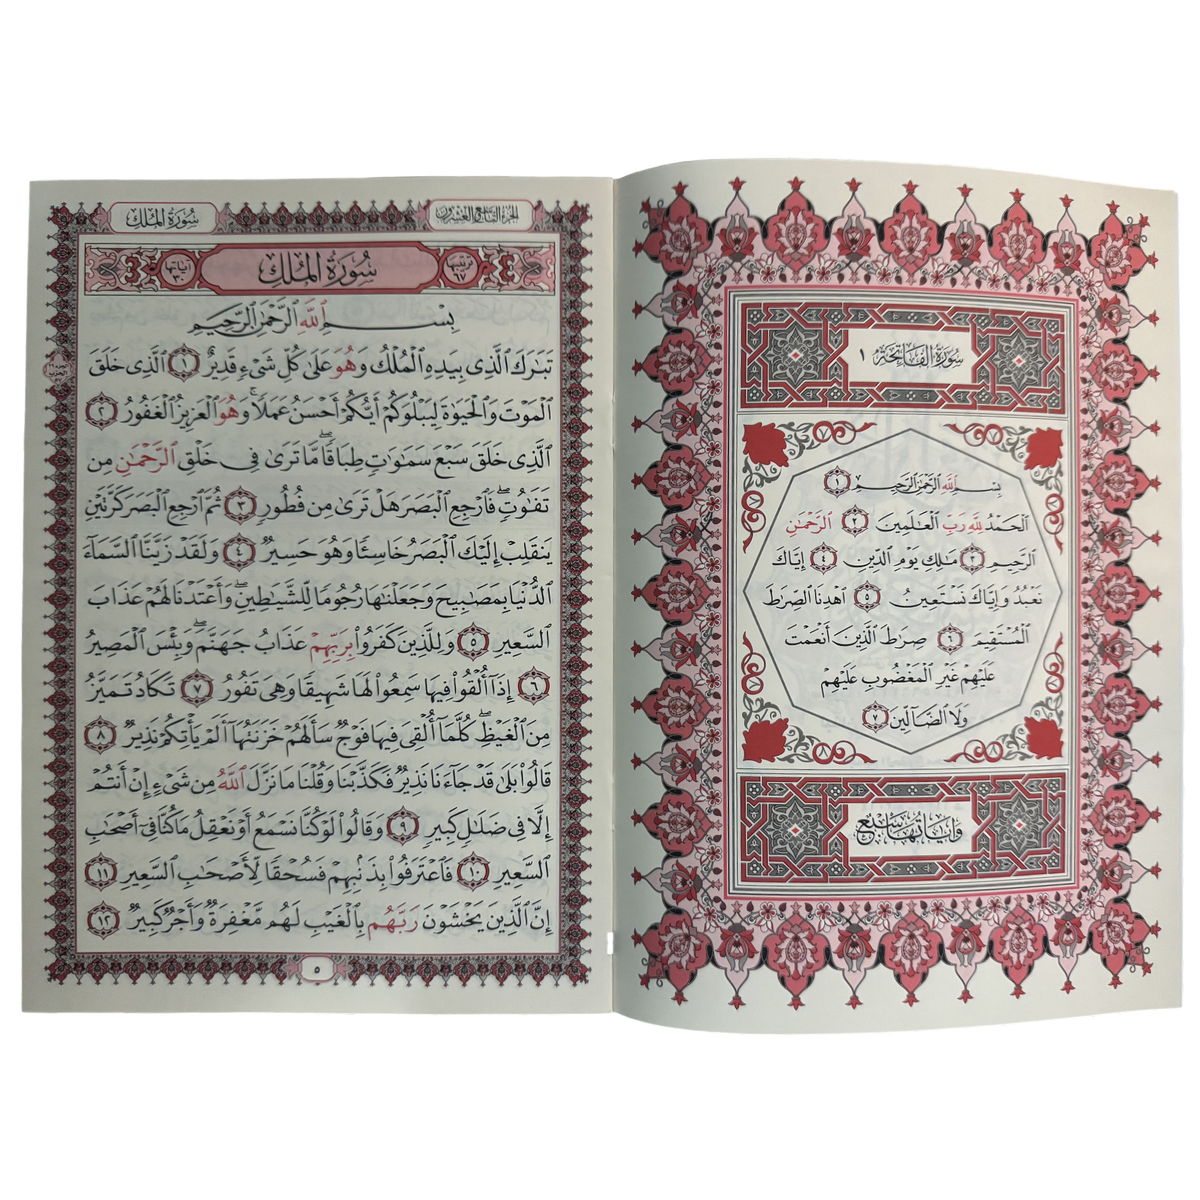 سُورَةُ الفَاتِحَةِ ١
بِسْمِ ٱللَّهِ ٱلرَّحْمَٰنِ ٱلرَّحِيمِ ١
ٱلْحَمْدُ لِلَّهِ رَبِّ ٱلْعَٰلَمِينَ ٢ ٱلرَّحْمَٰنِ
ٱلرَّحِيمِ ٣ مَٰلِكِ يَوْمِ ٱلدِّينِ ٤ إِيَّاكَ
نَعْبُدُ وَإِيَّاكَ نَسْتَعِينُ ٥ ٱهْدِنَا ٱلصِّرَٰطَ
ٱلْمُسْتَقِيمَ ٦ صِرَٰطَ ٱلَّذِينَ أَنْعَمْتَ
عَلَيْهِمْ غَيْرِ ٱلْمَغْضُوبِ عَلَيْهِمْ
وَلَا ٱلضَّآلِّينَ ٧
وَآيَاتُهَا سَبْعٌ
الجزء التاسع والعشرون
سُورَةُ المُلْكِ
ترتيبها ٦٧ سُورَةُ المُلْكِ آياتها ٣٠
بِسْمِ ٱللَّهِ ٱلرَّحْمَٰنِ ٱلرَّحِيمِ
تَبَٰرَكَ ٱلَّذِى بِيَدِهِ ٱلْمُلْكُ وَهُوَ عَلَىٰ كُلِّ شَىْءٍ قَدِيرٌ ١ ٱلَّذِى خَلَقَ
ٱلْمَوْتَ وَٱلْحَيَوٰةَ لِيَبْلُوَكُمْ أَيُّكُمْ أَحْسَنُ عَمَلًا ۚ وَهُوَ ٱلْعَزِيزُ ٱلْغَفُورُ ٢
ٱلَّذِى خَلَقَ سَبْعَ سَمَٰوَٰتٍ طِبَاقًا ۖ مَّا تَرَىٰ فِى خَلْقِ ٱلرَّحْمَٰنِ مِن
تَفَٰوُتٍ ۖ فَٱرْجِعِ ٱلْبَصَرَ هَلْ تَرَىٰ مِن فُطُورٍ ٣ ثُمَّ ٱرْجِعِ ٱلْبَصَرَ كَرَّتَيْنِ
يَنقَلِبْ إِلَيْكَ ٱلْبَصَرُ خَاسِئًا وَهُوَ حَسِيرٌ ٤ وَلَقَدْ زَيَّنَّا ٱلسَّمَآءَ
ٱلدُّنْيَا بِمَصَٰبِيحَ وَجَعَلْنَٰهَا رُجُومًا لِّلشَّيَٰطِينِ ۖ وَأَعْتَدْنَا لَهُمْ عَذَابَ
ٱلسَّعِيرِ ٥ وَلِلَّذِينَ كَفَرُوا۟ بِرَبِّهِمْ عَذَابُ جَهَنَّمَ ۖ وَبِئْسَ ٱلْمَصِيرُ
٦ إِذَآ أُلْقُوا۟ فِيهَا سَمِعُوا۟ لَهَا شَهِيقًا وَهِىَ تَفُورُ ٧ تَكَادُ تَمَيَّزُ
مِنَ ٱلْغَيْظِ ۖ كُلَّمَآ أُلْقِىَ فِيهَا فَوْجٌ سَأَلَهُمْ خَزَنَتُهَآ أَلَمْ يَأْتِكُمْ نَذِيرٌ ٨
قَالُوا۟ بَلَىٰ قَدْ جَآءَنَا نَذِيرٌ فَكَذَّبْنَا وَقُلْنَا مَا نَزَّلَ ٱللَّهُ مِن شَىْءٍ إِنْ أَنتُمْ
إِلَّا فِى ضَلَٰلٍ كَبِيرٍ ٩ وَقَالُوا۟ لَوْ كُنَّا نَسْمَعُ أَوْ نَعْقِلُ مَا كُنَّا فِىٓ أَصْحَٰبِ
ٱلسَّعِيرِ ١٠ فَٱعْتَرَفُوا۟ بِذَنۢبِهِمْ فَسُحْقًا لِّأَصْحَٰبِ ٱلسَّعِيرِ ١١
إِنَّ ٱلَّذِينَ يَخْشَوْنَ رَبَّهُم بِٱلْغَيْبِ لَهُم مَّغْفِرَةٌ وَأَجْرٌ كَبِيرٌ ١٢
٥